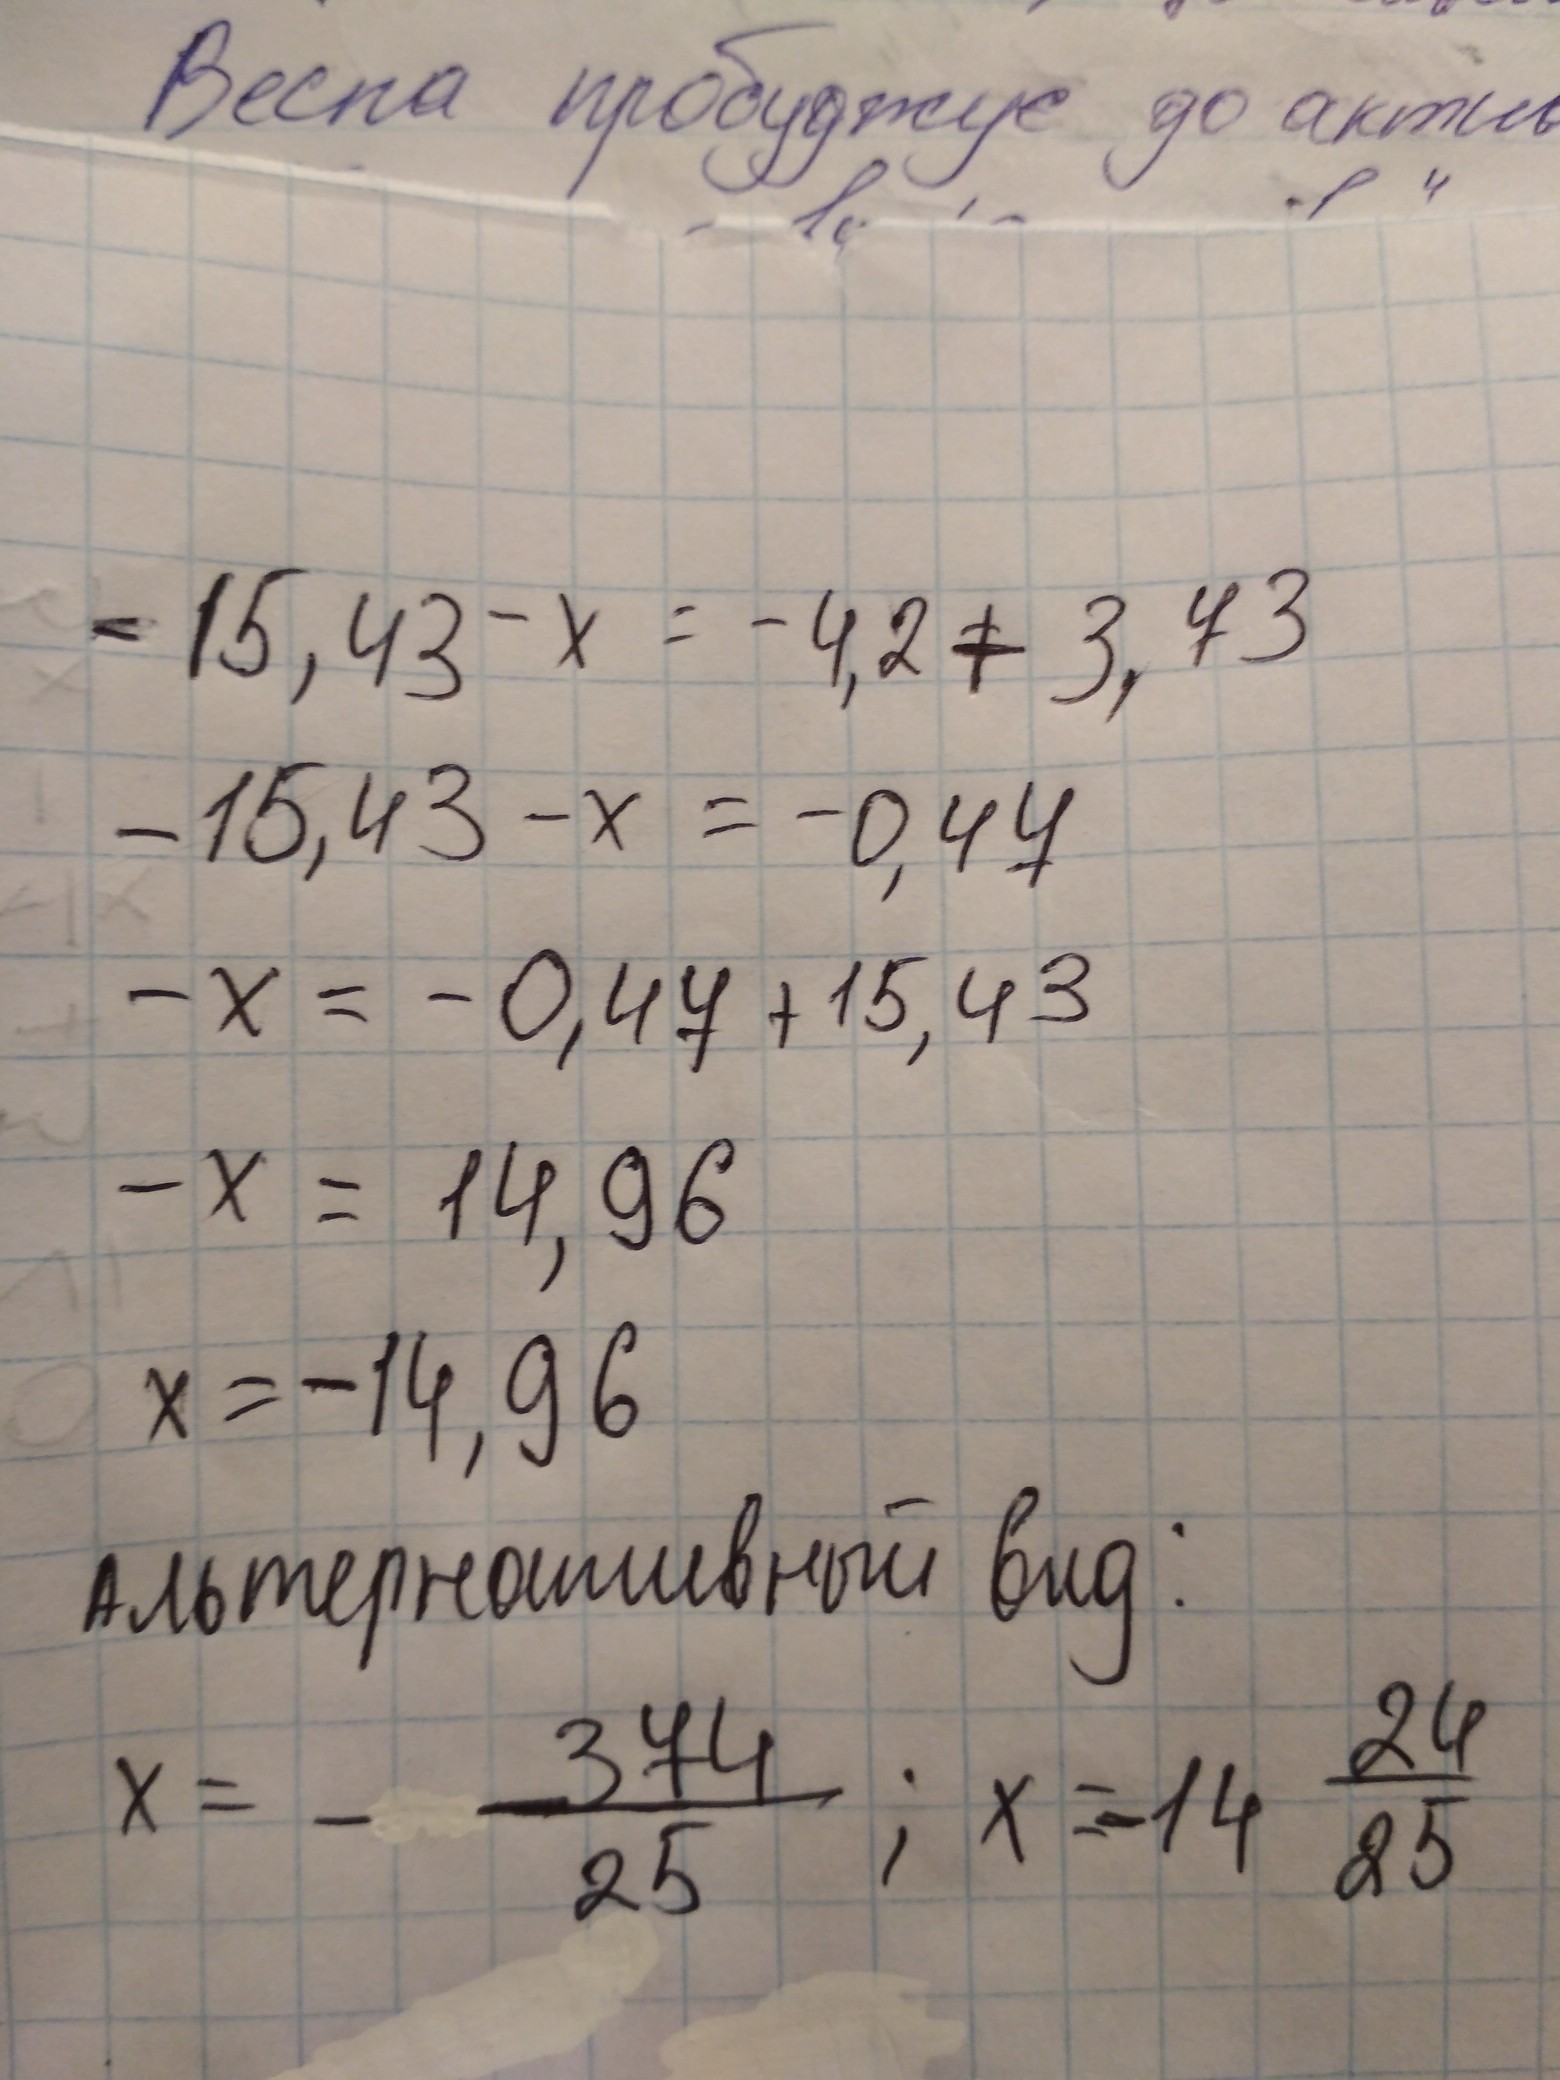 Весна пробуджує до
- 15,43 - x = -4,2 + 3,73
- 15,43 - x = -0,47
- x = - 0,47 + 15,43
- x = 14,96
x = -14,96
Альтернативный вид:
x = - 374/25 ; x = -14 24/25